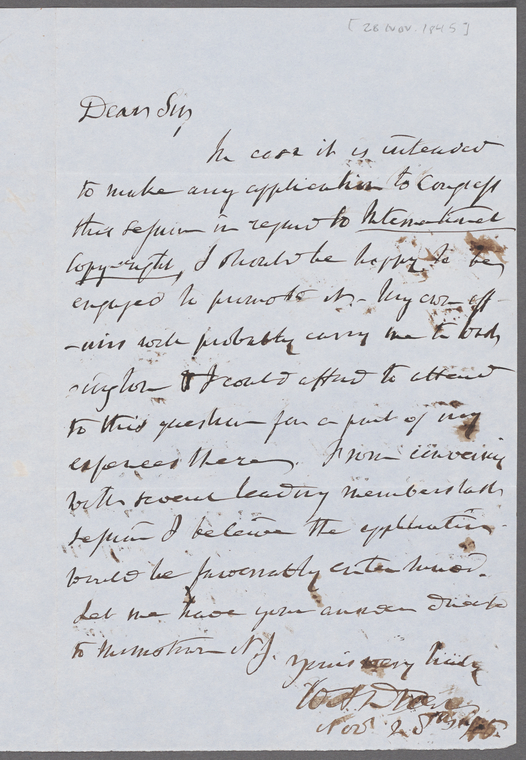 [28 Nov. 1845]
Dear Sir,
In case it is intended
to make any application to Congress
this session in regard to International
Copy-right, I should be happy to be
engaged to promote it - My own aff
-airs will probably carry me to Wash
-ington & I could afford to attend
to this question for a part of my
expenses there. From conversing
with several leading members last
session I believe the application
would be favorably entertained.
Let me have your answer direct
to Morristown N.J.
yours very truly
W. A. Duer
Nov. 28th